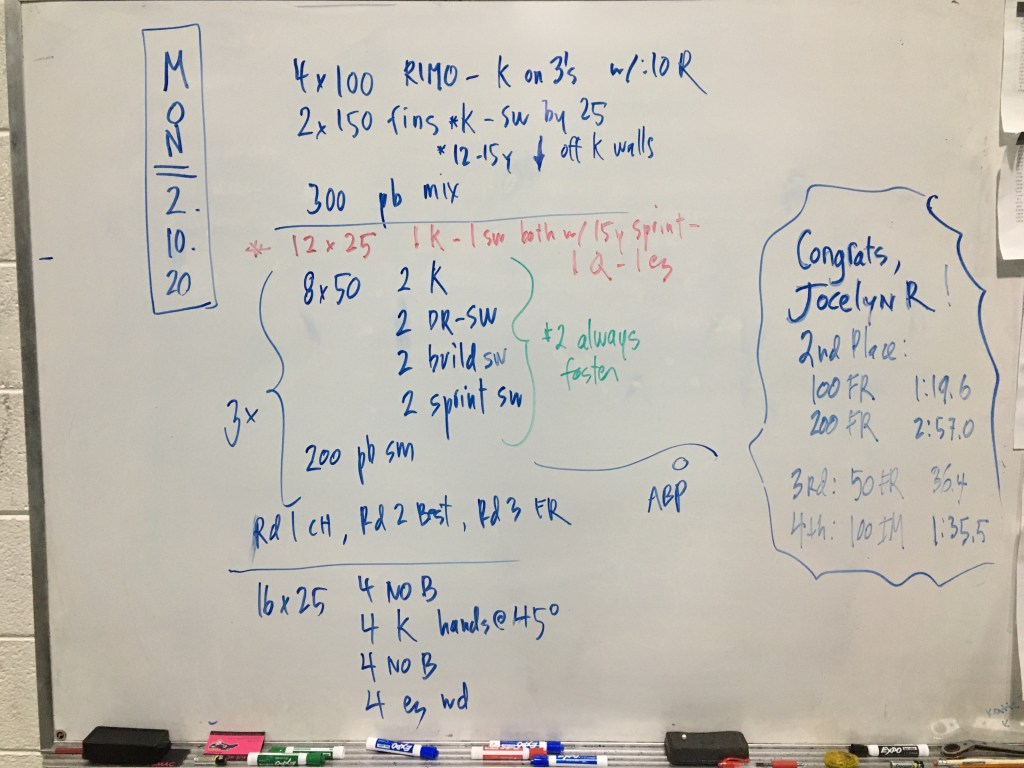 MON
2.
10.
20
4x100 RIMO - K on 3's w/:10 R
2x150 fins *K-sw by 25
*12-15y ↓ off K walls
300 pb mix
* 12x25 1K-1sw both w/ 15y sprint-
1 Q-1 ez
3x
8x50 2 K
2 DR-SW
2 build sw
2 sprint sw
*2 always
faster
200 pb sm
Rd 1 CH, Rd 2 Best, Rd 3 FR
ABP
16x25 4 NO B
4 K hands@45°
4 NO B
4 ez wd
Congrats,
Jocelyn R!
2nd Place:
100 FR 1:19.6
200 FR 2:57.0
3rd: 50 FR 36.4
4th: 100 IM 1:35.5
EXPO
EXPO
EXPO